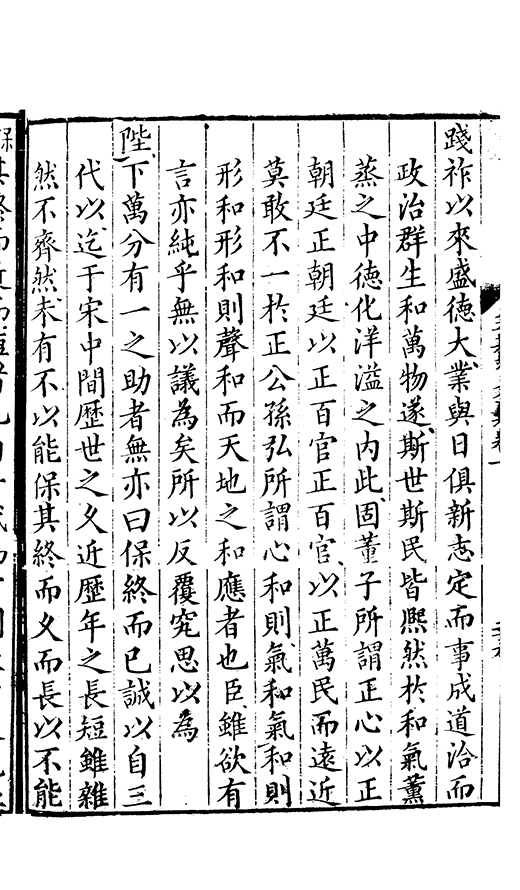 踐祚以來盛徳大業與日俱新志定而事成道洽而
政治群生和萬物遂斯世斯民皆熈然於和氣薰
蒸之中徳化洋溢之内此固董子所謂正心以正
朝廷正朝廷以正百官正百官以正萬民而遠近
莫敢不一於正公孫弘所謂心和則氣和氣和則
形和形和則聲和而天地之和應者也臣雖欲有
言亦純乎無以議為矣所以反覆究思以為
陛下萬分有一之助者無亦曰保終而已誠以自三
代以迄于宋中間歴世之乆近歴年之長短雖雜
然不齊然未有不以能保其終而乆而長以不能